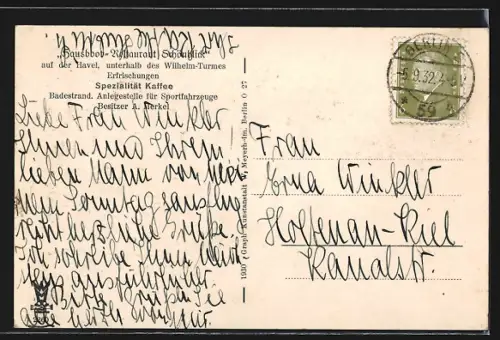 "Hausboot-Restaurant Schönblick"
auf der Havel, unterhalb des Wilhelm-Turmes
Erfrischungen
Spezialität Kaffee
Badestrand. Anlegestelle für Sportfahrzeuge
Besitzer A. Merkel
Liebe Frau Winkler
Ihnen und Ihrem
lieben Mann von
Sonntag
recht herzliche Grüße.
Ich schreibe Ihnen
ausführlicher
Bitte grüßen Sie
1930 Graph. Kunstanstalt W. Meyerheim, Berlin O 27
BERLIN
5.9.32
59
Frau
Erna Winkler
Holtenau-Kiel
Kanalstr.